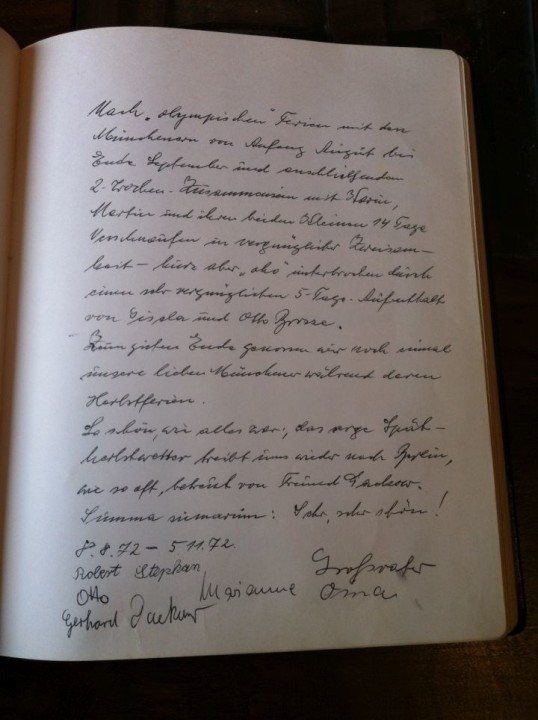 Nach „olympischen" Ferien mit den
Münchenern von Anfang August bis
Ende September und anschließenden
2-Wochen-Zusammensein mit Karin,
Martin und ihren beiden Kleinen 14 Tage
Verschnaufen in vergnüglicher Zweisam-
keit – hier aber „oho" unterbrochen durch
einen sehr vergnüglichen 5-Tage-Aufenthalt
von Gisela und Otto
Zum guten Ende genossen wir noch einmal
unsere lieben Münchener während deren
Herbstferien.
So schön, wie alles war, das arge Spät-
herbstwetter treibt uns wieder nach Berlin,
wie so oft, betreut von Freund
Summa summarum: Sehr, sehr schön!
8.8.72 – 5.11.72.
Robert Stephan
Otto
Gerhard
Marianne
Großvater
Oma